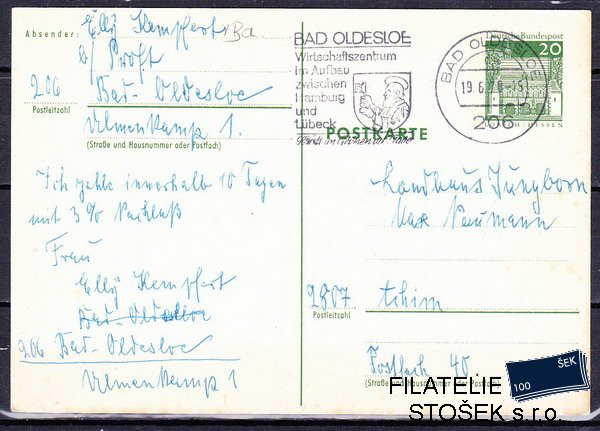 Absender:
Elly Kempfert
b/ Proft
206
Bad-Oldesloe
Postleitzahl
Ulmenkamp 1.
(Straße und Hausnummer oder Postfach)
Ich zahle innerhalb 10 Tagen
mit 3% Nachlaß
Frau
Elly Kempfert
Bad-Oldesloe
206 Bad-Oldesloe
Ulmenkamp 1
BAD OLDESLOE
Wirtschaftszentrum
im Aufbau
zwischen
Hamburg
und
Lübeck
BAD OLDESLOE
19.6.70
206
Deutsche Bundespost
20
LORSCH/HESSEN
POSTKARTE
Landhaus Jungborn
Max Neumann
2807
Achim
Postleitzahl
Postfach 40.
(Straße und Hausnummer oder Postfach)
FILATELIE
STOŠEK s.r.o.
100
ŠEK